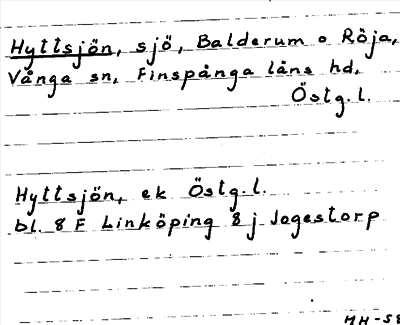 Hyttsjön, sjö, Balderum o Röja,
Vånga sn, Finspånga läns hd,
Östg.l.
Hyttsjön, ek Östg.l.
bl. 8 F Linköping 8 j Jagestorp